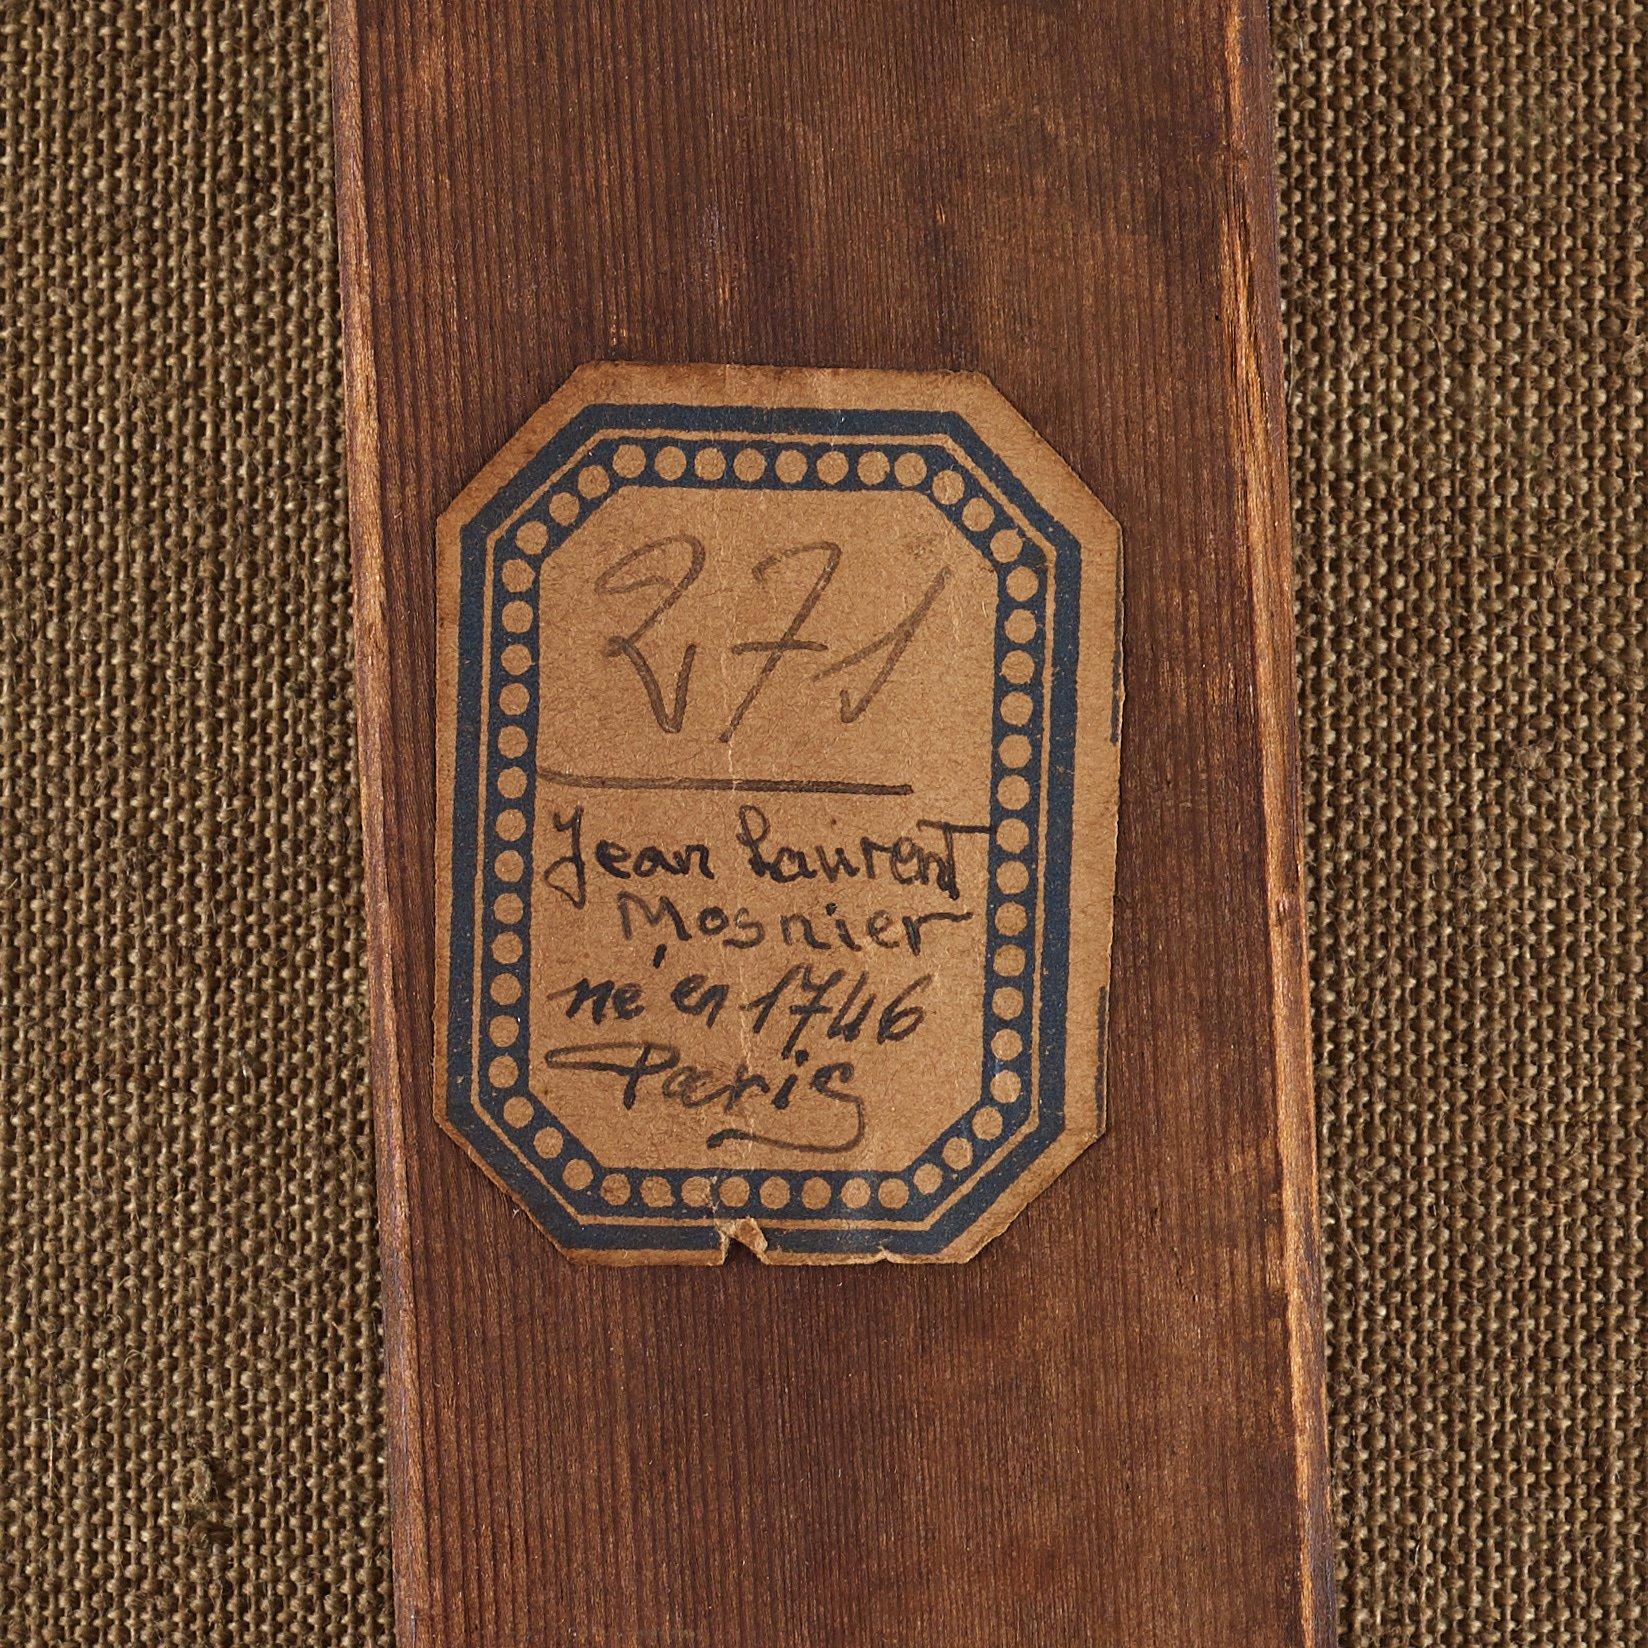 271
Jean Laurent
Mosnier
né en 1746
Paris